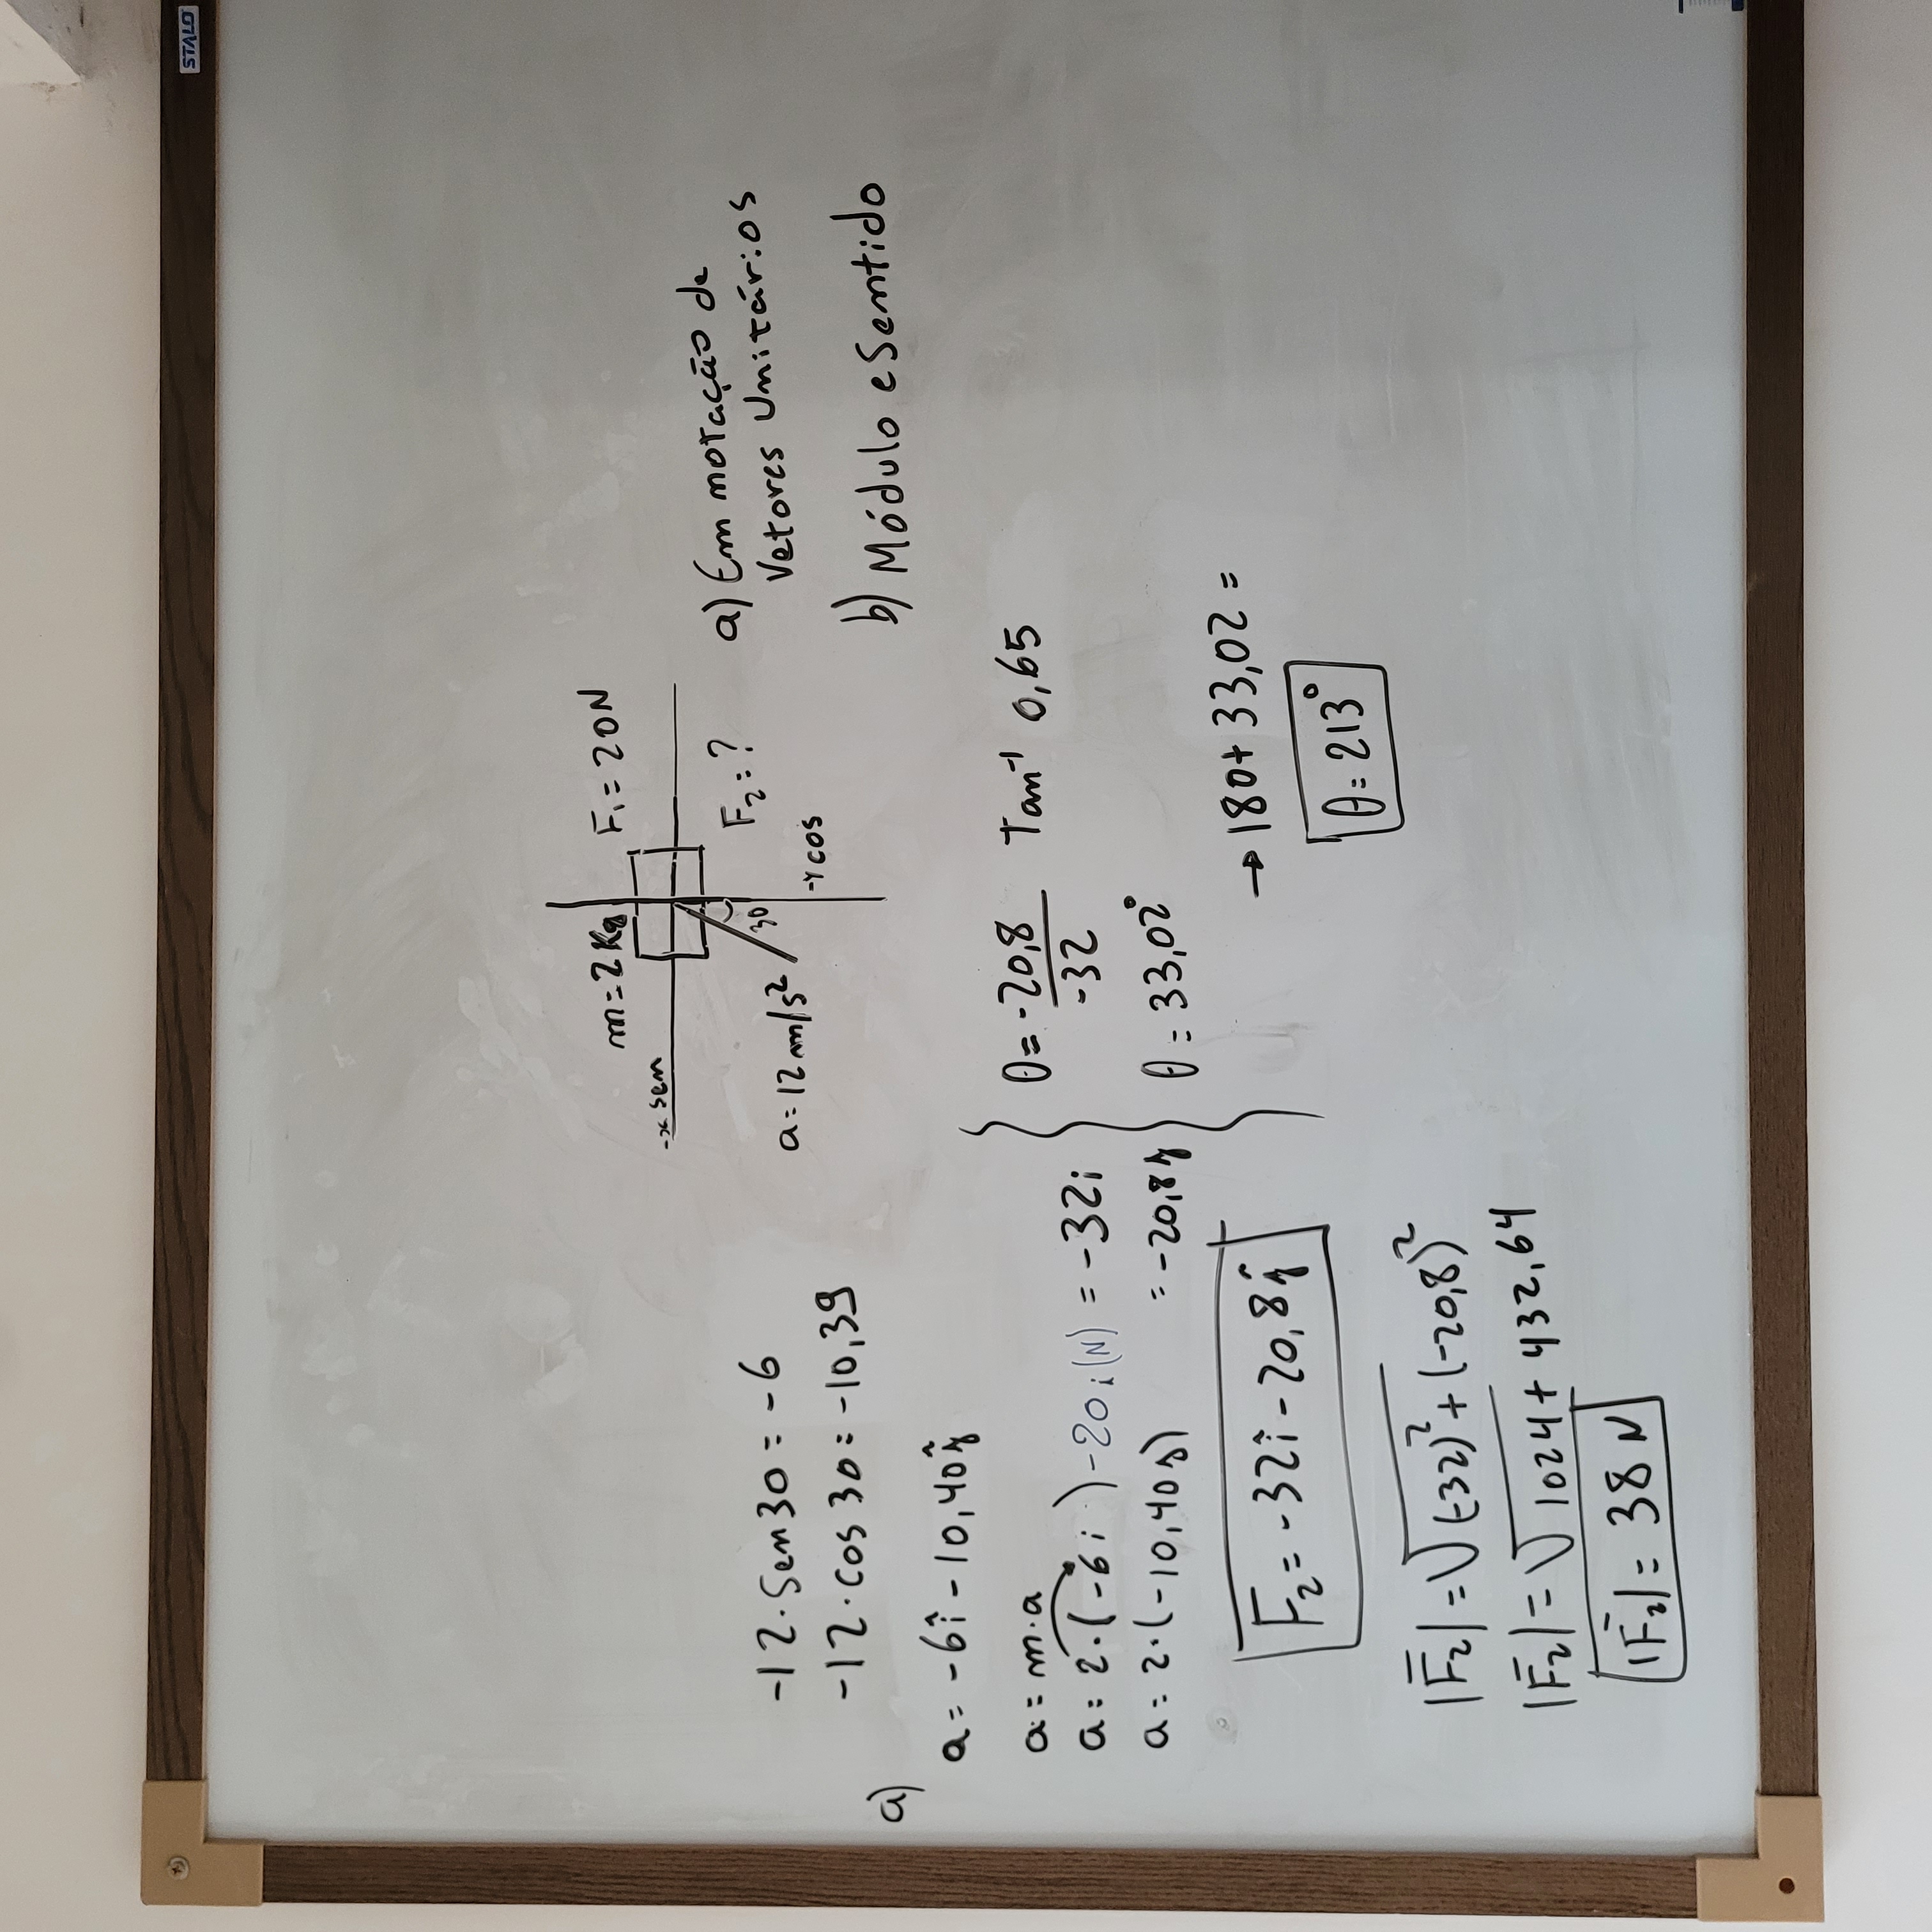 STALO
m=2Kg F₁=20N
-x sen
a=12m/s² 30 F₂=?
-y cos
a) Em notação de
Vetores Unitários
b) Módulo e Sentido
-12·Sen30=-6
-12·cos30=-10,39
a)
a=-6î-10,40ĵ
a=m·a
a=2·(-6i)-20i(N)=-32i
a=2·(-10,40j) =-20,8j
F₂=-32î-20,8ĵ
|F₂|=√(-32)²+(-20,8)²
|F₂|=√1024+432,64
|F₂|=38N
θ=-20,8/-32 Tan⁻¹ 0,65
θ=33,02°
→180+33,02=
θ=213°